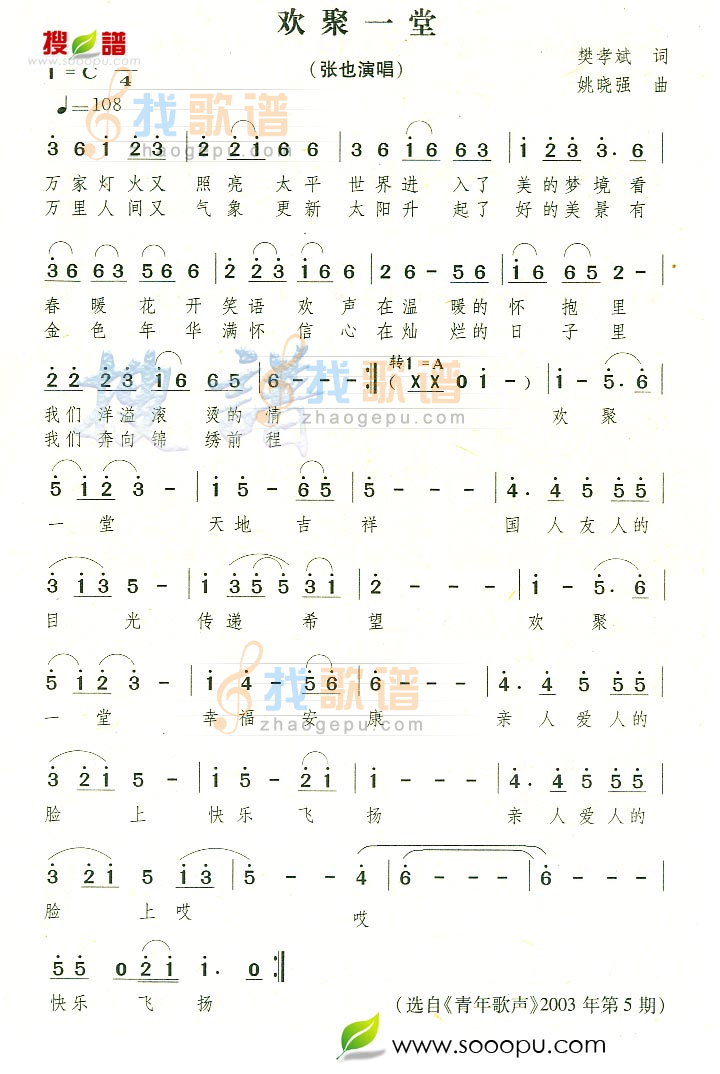 欢聚一堂
搜谱
www.sooopu.com
1=C 4
(张也演唱)
樊孝斌 词
姚晓强 曲
♩=108
找歌谱
zhaogepu.com
3 6 1 2 3 | 2 2 1 6 6 | 3 6 1 6 6 3 | 1 2 3 3. 6 |
万家灯火又 照亮 太平 世界进 入了 美的梦境看
万里人间又 气象 更新 太阳升 起了 好的美景有
3 6 6 3 5 6 6 | 2 2 3 1 6 | 2 6 - 5 6 | 1 6 6 5 6 - |
春暖花开笑语欢声在温暖的怀抱里
金色年华满怀信心在灿烂的日子里
转1=A
2 2 2 3 1 6 6 5 | 6 - - - :‖ ( X X 0 1 - ) | 1 - 5. 6 |
我们 洋溢 滚 烫的 情 欢 聚
我们 奔向 锦 绣前 程
找歌谱
zhaogepu.com
5 1 2 3 - | 1 5 - 6 5 | 5 - - - | 4. 4 5 5 5 |
一堂 天地 吉祥 国人友人的
3 1 3 5 - | 1 3 5 5 3 1 | 2 - - - | 1 - 5. 6 |
目光 传递 希望 欢聚
5 1 2 3 - | 1 4 - 5 6 | 6 - - - | 4. 4 5 5 5 |
一堂 幸福 安康 亲人爱人的
找歌谱
zhaogepu.com
3 2 1 5 - | 5 5 - 2 1 | 1 - - - | 4. 4 5 5 5 |
脸上 快乐 飞扬 亲人爱人的
3 2 1 5 1 3 | 5 - - 4 | 6 - - - | 6 - - - |
脸 上哎 哎
5 5 0 2 1 1. 0 :‖
快乐 飞扬
(选自《青年歌声》2003年第5期)
www.sooopu.com